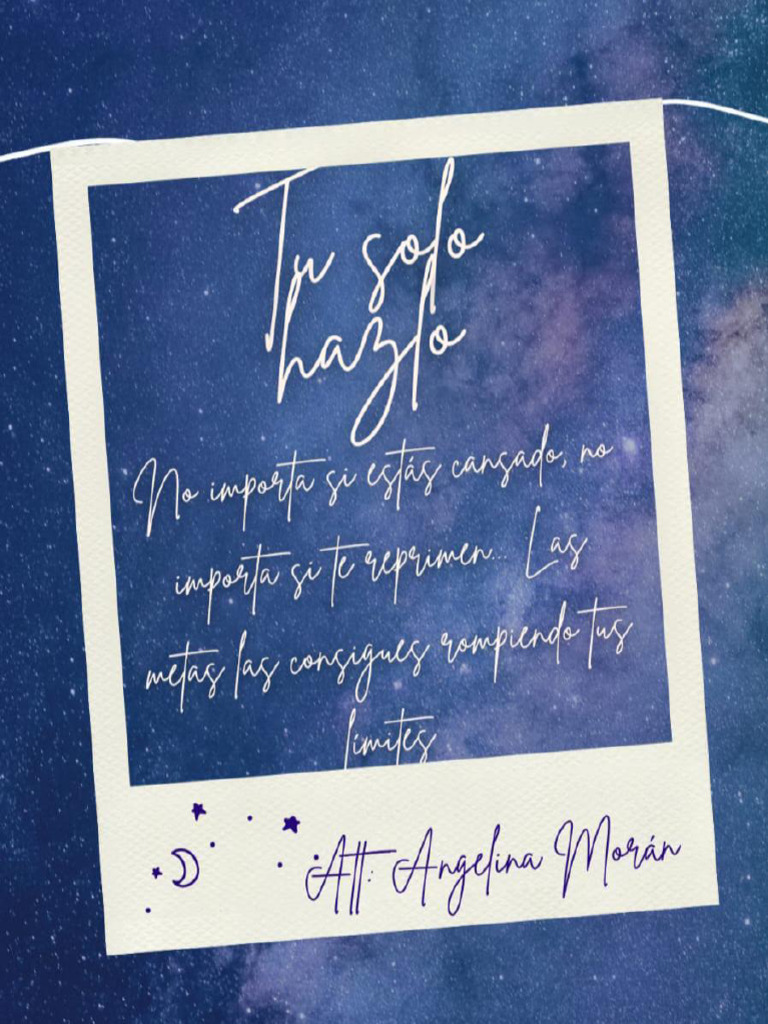 Tu solo
hazlo
No importa si estás cansado, no
importa si te reprimen... Las
metas las consigues rompiendo tus
límites
Att: Angelina Morán